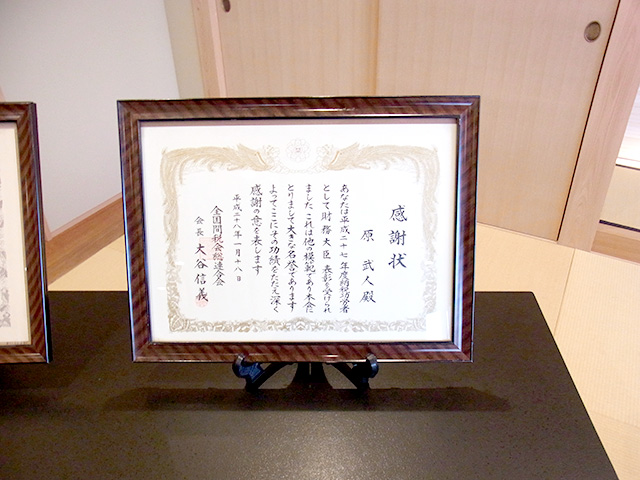 感謝状
原 武人 殿
あなたは平成二十七年度納税功労者
として財務大臣表彰を受けられ
ました これは他の模範であり本会に
とりまして大きな名誉であります
よってここにその功績をたたえ深く
感謝の意を表します
平成二十八年一月十八日
全国間税会総連合会
会長 大谷信義